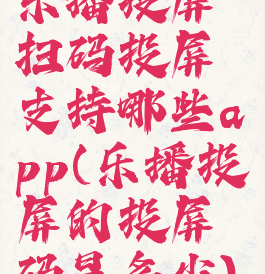 乐播投屏
扫码投屏
支持哪些a
pp(乐播投
屏的投屏
码是多少)